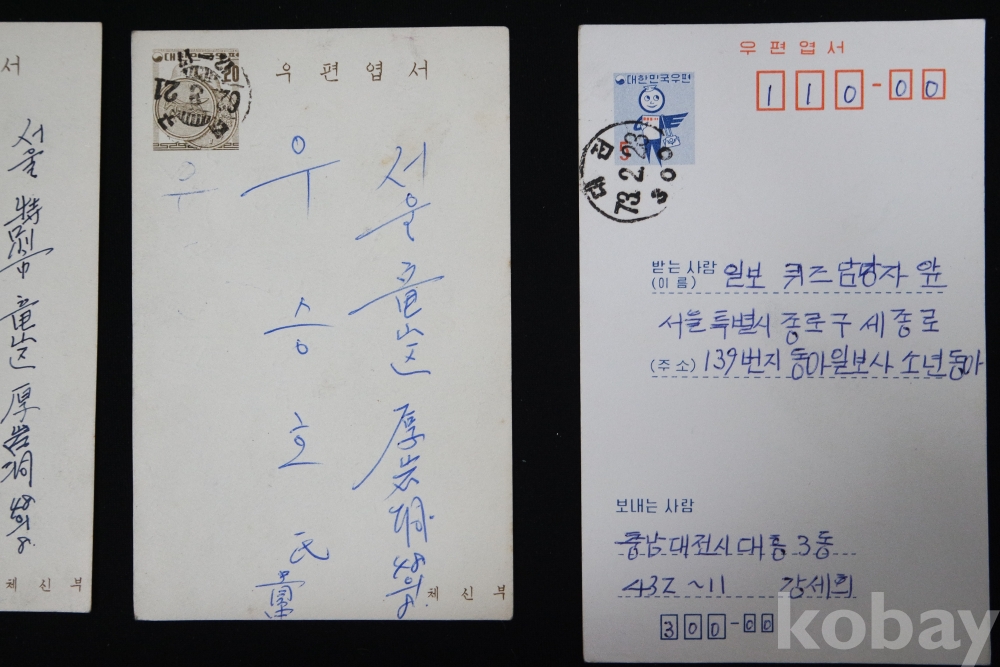 서
서울 特別市 竜山区 厚岩洞 48의8.
체신부
대한민국우편
20
우편엽서
서울 竜山区 厚岩洞 48의8.
우승호 氏
우
체신부
우편엽서
110-00
대한민국우편
5
73.2.23
받는 사람
(이 름)
일보 퀴즈 담당자 앞
서울특별시 종로구 세종로
(주 소) 139번지 동아일보사 소년동아
보내는 사람
충남 대전시 대흥 3동
432~11 강세희
300-00
kobay